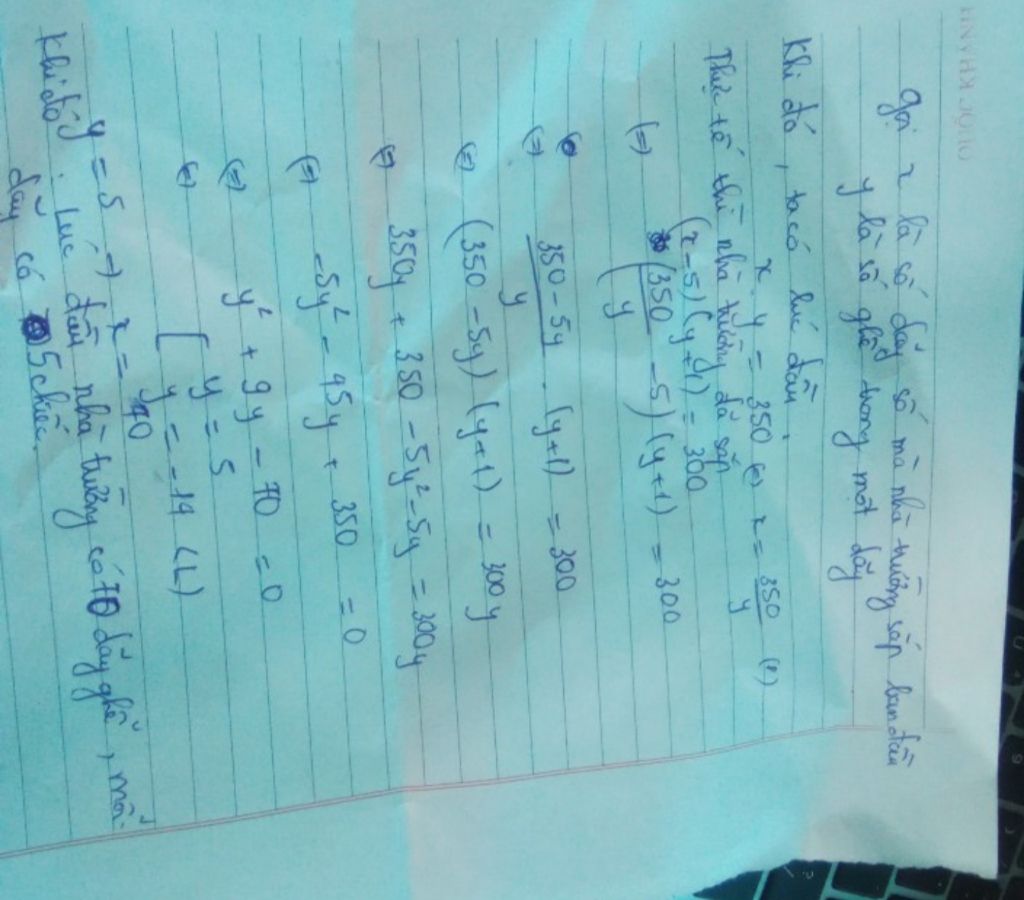 Gọi x là số dãy số mà nhà trường sắp ban đầu
y là số ghế trong một dãy
Khi đó, ta có lúc đầu:
x . y = 350 (=) x = 350/y (1)
Thực tế thì nhà trường đã sắp
(x-5)(y+1) = 300
(=) (350/y - 5)(y+1) = 300
(=) 350-5y/y . (y+1) = 300
(=) (350-5y)(y+1) = 300y
(=) 350y + 350 - 5y² - 5y = 300y
(=) -5y² - 45y + 350 = 0
(=) y² + 9y - 70 = 0
(=) [ y = 5
y = -14 (L)
y = 5 => x = 70
Khi đó, lúc đầu nhà trường có 70 dãy ghế, mỗi
dãy có 5 chiếc.